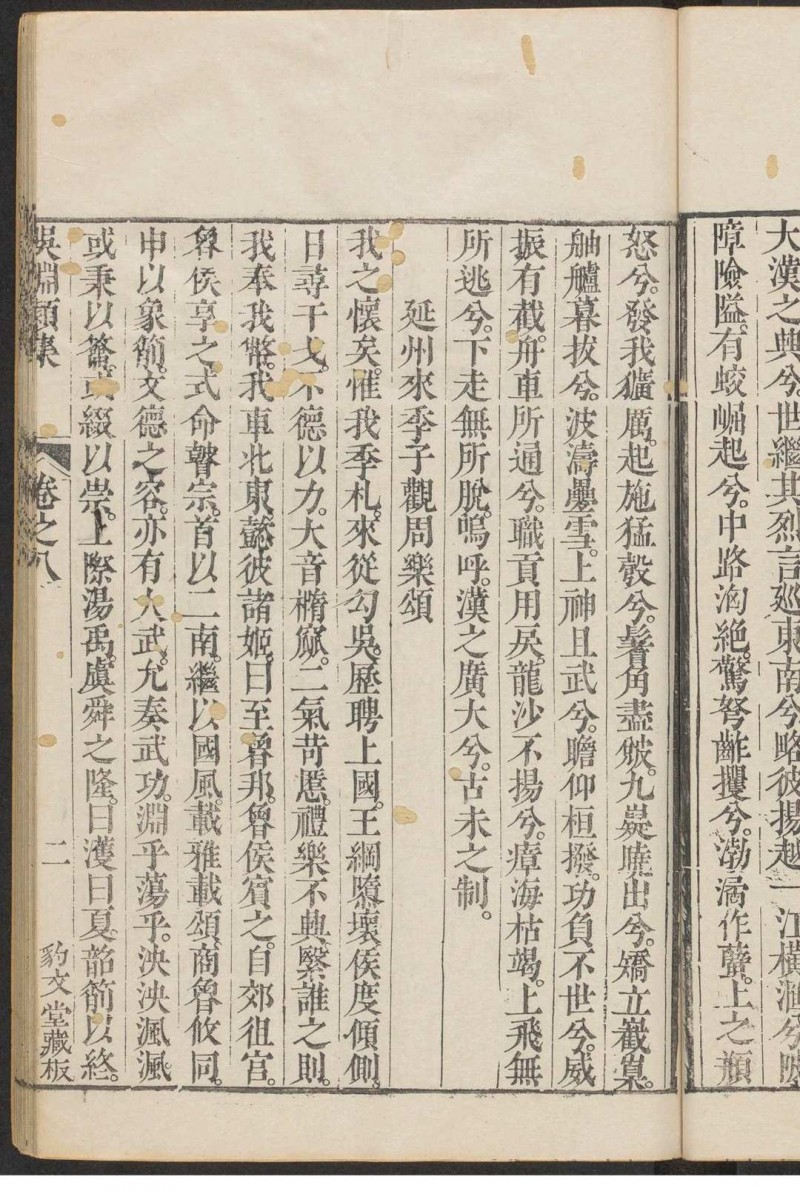 大漢之典兮世繼其烈言巡東南兮略彼揚越一江橫
障險隘。有蛟崛起兮。中路洶絕。驚弩齜攫兮。渤㵎作孽。上之
怒兮。發我獷厲。起施猛彀兮。鬐角盡皴。九嶷曉出兮。嬌立巀嵲。
舳艫暮拔兮。波濤壘雪。上神且武兮。瞻仰桓撥。功負不世兮。威
振有截。舟車所通兮。職貢用戾。龍沙不揚兮。瘴海枯竭。上飛無
所逃兮。下走無所脫。嗚呼。漢之廣大兮。古未之制。
延州來季子觀周樂頌
我之懷矣。惟我季札。來從勾吳。歷聘上國。王綱隳壞。侯度傾側。
日尋干戈。不德以力。大音橢窳。二氣苛慝。禮樂不典。繄誰之則。
我奉我幣。我車北東。懿彼諸姬。曰至魯邦。魯侯賓之。自郊徂宮。
魯侯享之。式命瞽宗。首以二南。繼以國風。載雅載頌。商魯攸同。
申以象箾。文德之容。亦有大武。允奏武功。淵乎蕩乎。泱泱渢渢。
或秉以籥。或綴以崇。上際湯禹。虞舜之隆。曰濩曰夏。韶箾以終。
吳淵頴集 卷之八 二 豹文堂藏板